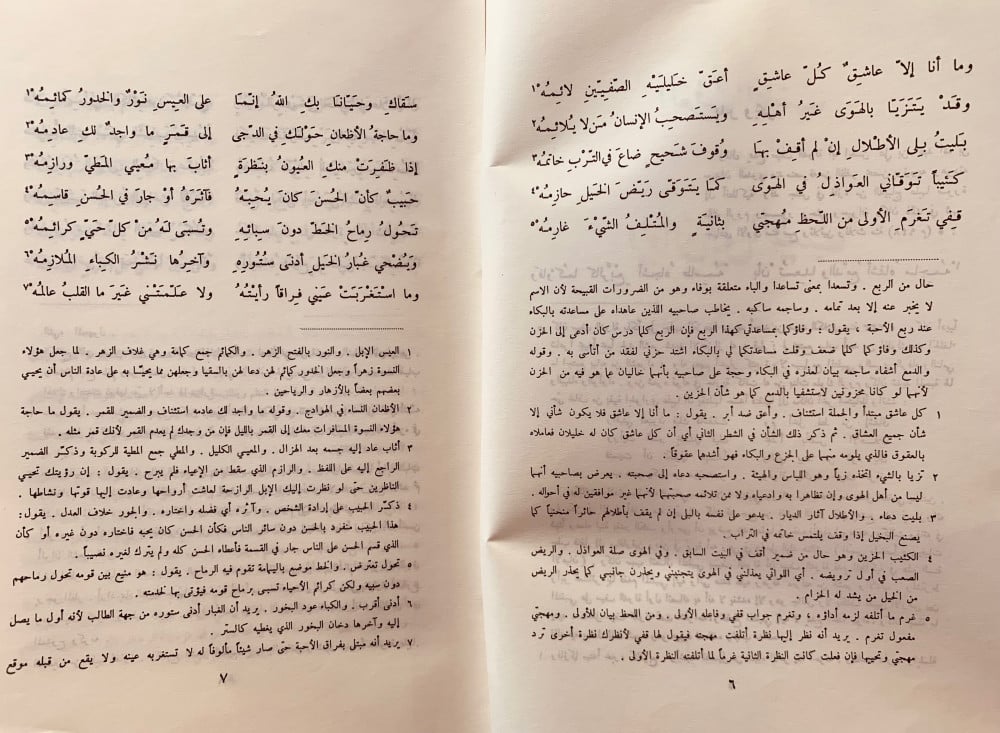 وما أنا إلاّ عاشِقٌ كُلّ عاشِقٍ أعَقّ خَليلَيْهِ الصّفِيّينِ لائِمُهْ ١
وقَدْ يَتَزَيّا بالهَوَى غَيرُ أهْلِهِ ويَستَصحِبُ الإنسانُ مَن لا يُلائِمُهْ ٢
بَليتُ بِلى الأطْلالِ إنْ لم أقِفْ بهَا وُقوفَ شَحيحٍ ضاعَ في التّرْبِ خاتمُهْ ٣
كَئيباً تَوَقّاني العَواذِلُ في الهَوَى كمَا يَتَوَقّى رَيّضَ الخَيلِ حازِمُهْ ٤
قِفي تَغرَمِ الأولى من اللحظِ مُهجَتي بثانِيَةٍ والمُتْلِفُ الشّيْءَ غارِمُهْ ٥
حال من الربع . وتسعدا بمعنى تساعدا والباء متعلقة بوفاء وهو من الضرورات القبيحة لأن الاسم
لا يخبر عنه إلا بعد تمامه . وساجمه ساكبه . يخاطب صاحبيه الذين عاهداه على مساعدته بالبكاء
عند ربع الأحبة ، يقول : وفاؤكما بمساعدتي كهذا الربع فإن الربع كلما درس كان أدعى إلى الحزن
وكذلك وفاؤكما كلما ضعف وقلت مساعدتكما لي بالبكاء اشتد حزني لفقد من أتأسى به . وقوله
والدمع أشفاه ساجمه بيان لعذره في البكاء وحجة على صاحبيه بأنهما خاليان عما هو فيه من الحزن
لأنهما لو كانا محزونين لاستشفيا بالدمع كما هو شأن الحزين .
١ كل عاشق مبتدأ والجملة استئناف . وأعق ضد أبر . يقول : ما أنا إلا عاشق فلا يكون شأني إلا
شأن جميع العشاق . ثم ذكر ذلك الشأن في الشطر الثاني أي أن كل عاشق كان له خليلان فعاملاه
بالعقوق فالذي يلومه منهما على الجزع والبكاء فهو أشدهما عقوقاً .
٢ تزيا بالشيء اتخذه زياً وهو اللباس والهيئة . واستصحبه دعاه إلى صحبته . يعرض بصاحبيه أنهما
ليسا من أهل الهوى وإن تظاهرا به وادعياه ولا ممن تلائمه صحبتهما لأنهما غير موافقين له في أحواله .
٣ بليت دعاء . والأطلال آثار الديار . يدعو على نفسه بالبلى إن لم يقف بأطلالهم حائراً منحنياً كما
يصنع البخيل إذا وقف يلتمس خاتمه في التراب .
٤ الكئيب الحزين وهو حال من ضمير أقف في البيت السابق . وفي الهوى صلة العواذل . والريض
الصعب في أول ترويضه . أي اللواتي يعذلنني في الهوى يتجنبنني ويحذرن جانبي كما يحذر الريض
من الخيل من يشد له الحزام .
٥ غرم ما أتلفه لزمه أداؤه ، وتغرم جواب قفي وفاعله الأولى . ومن اللحظ بيان للأولى . ومهجتي
مفعول تغرم . يريد أنه نظر إليها نظرة أتلفت مهجته فيقول لها قفي لأنظرك نظرة أخرى ترد
مهجتي وتحييها فإن فعلت كانت النظرة الثانية غرماً لما أتلفته النظرة الأولى .
٦
سَقاكِ وحَيّانَا بكِ اللهُ إنّمَا على العِيسِ نَوْرٌ والخدورُ كمائِمُهْ ١
وما حاجةُ الأظعانِ حَوْلَكِ في الدّجى إلى قَمَرٍ ما واجدٌ لكِ عادِمُهْ ٢
إذا ظَفِرَتْ منكِ العُيونُ بنَظرَةٍ أثابَ بها مُعيي المَطيّ ورازِمُهْ ٣
حَبيبٌ كأنّ الحُسنَ كانَ يُحبّهُ فآثَرَهُ أوْ جارَ في الحُسنِ قاسِمُهْ ٤
تَحُولُ رِماحُ الخَطّ دونَ سِبائِهِ وتُسبَى لَهُ من كلّ حَيٍّ كرائِمُهْ ٥
ويُضْحي غُبارُ الخَيلِ أدنَى سُتُورِهِ وآخِرُها نَشْرُ الكِباءِ المُلازِمُهْ ٦
وما استَغرَبَتْ عَيني فِراقاً رأيْتُهُ ولا عَلّمَتْني غَيرَ ما القلبُ عالمُهْ ٧
١ العيس الإبل . والنور بالفتح الزهر . والكمائم جمع كمامة وهي غلاف الزهر . لما جعل هؤلاء
النسوة زهراً وجعل الخدور كمائم لهن دعا لهن بالسقيا وجعلهن مما يحيّا به على عادة الناس أن يحيي
بعضهم بعضاً بالأزهار والرياحين .
٢ الأظعان النساء في الهوادج . وقوله ما واجد لك عادمه استئناف والضمير للقمر . يقول ما حاجة
هؤلاء النسوة المسافرات معك إلى القمر بالليل فإن من وجدك لم يعدم القمر لأنك قمر مثله .
٣ أثاب عاد إليه جسمه بعد الهزال . والمعيي الكليل . والمطي جمع المطية للركوبة وذكّر الضمير
الراجع إليه على اللفظ . والرازم الذي سقط من الإعياء فلم يبرح . يقول : إن رؤيتك تحيي
الناظرين حتى لو نظرت إليك الإبل الرازحة لعاشت أرواحها وعادت إليها قوتها ونشاطها .
٤ ذكّر الحبيب على إرادة الشخص . وآثره أي فضله واختاره . والجور خلاف العدل . يقول:
هذا الحبيب منفرد بالحسن دون سائر الناس فكأن الحسن كان يحبه فاختاره دون غيره أو كأن
الذي قسم الحسن على الناس جار في القسمة فأعطاه الحسن كله ولم يترك لغيره نصيباً .
٥ تحول تعترض . والخط موضع باليمامة تقوم فيه الرماح . يقول : هو منيع بين قومه تحول رماحهم
دون سبيه ولكن كرائم الأحياء تسبى برماح قومه فيؤتى بها لخدمته .
٦ أدنى أقرب . والكباء عود البخور . يريد أن الغبار أدنى ستوره من جهة الطالب لأنه أول ما يصل
إليه وآخرها دخان البخور الذي يغطيه كالستر .
٧ يريد أنه مبتلى بفراق الأحبة حتى صار شيئاً مألوفاً له لا تستغربه عينه ولا يقع من قبله موقع
٧